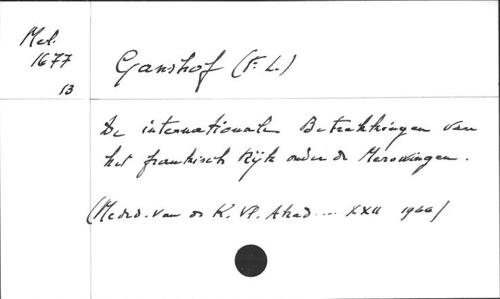 Mel.
1677
13
Ganshof (F. L.)
De internationale Betrekkingen van
het frankisch Rijk onder de Merowingen.
(Meded. van de K. Vl. Akad.... XXII 1960)